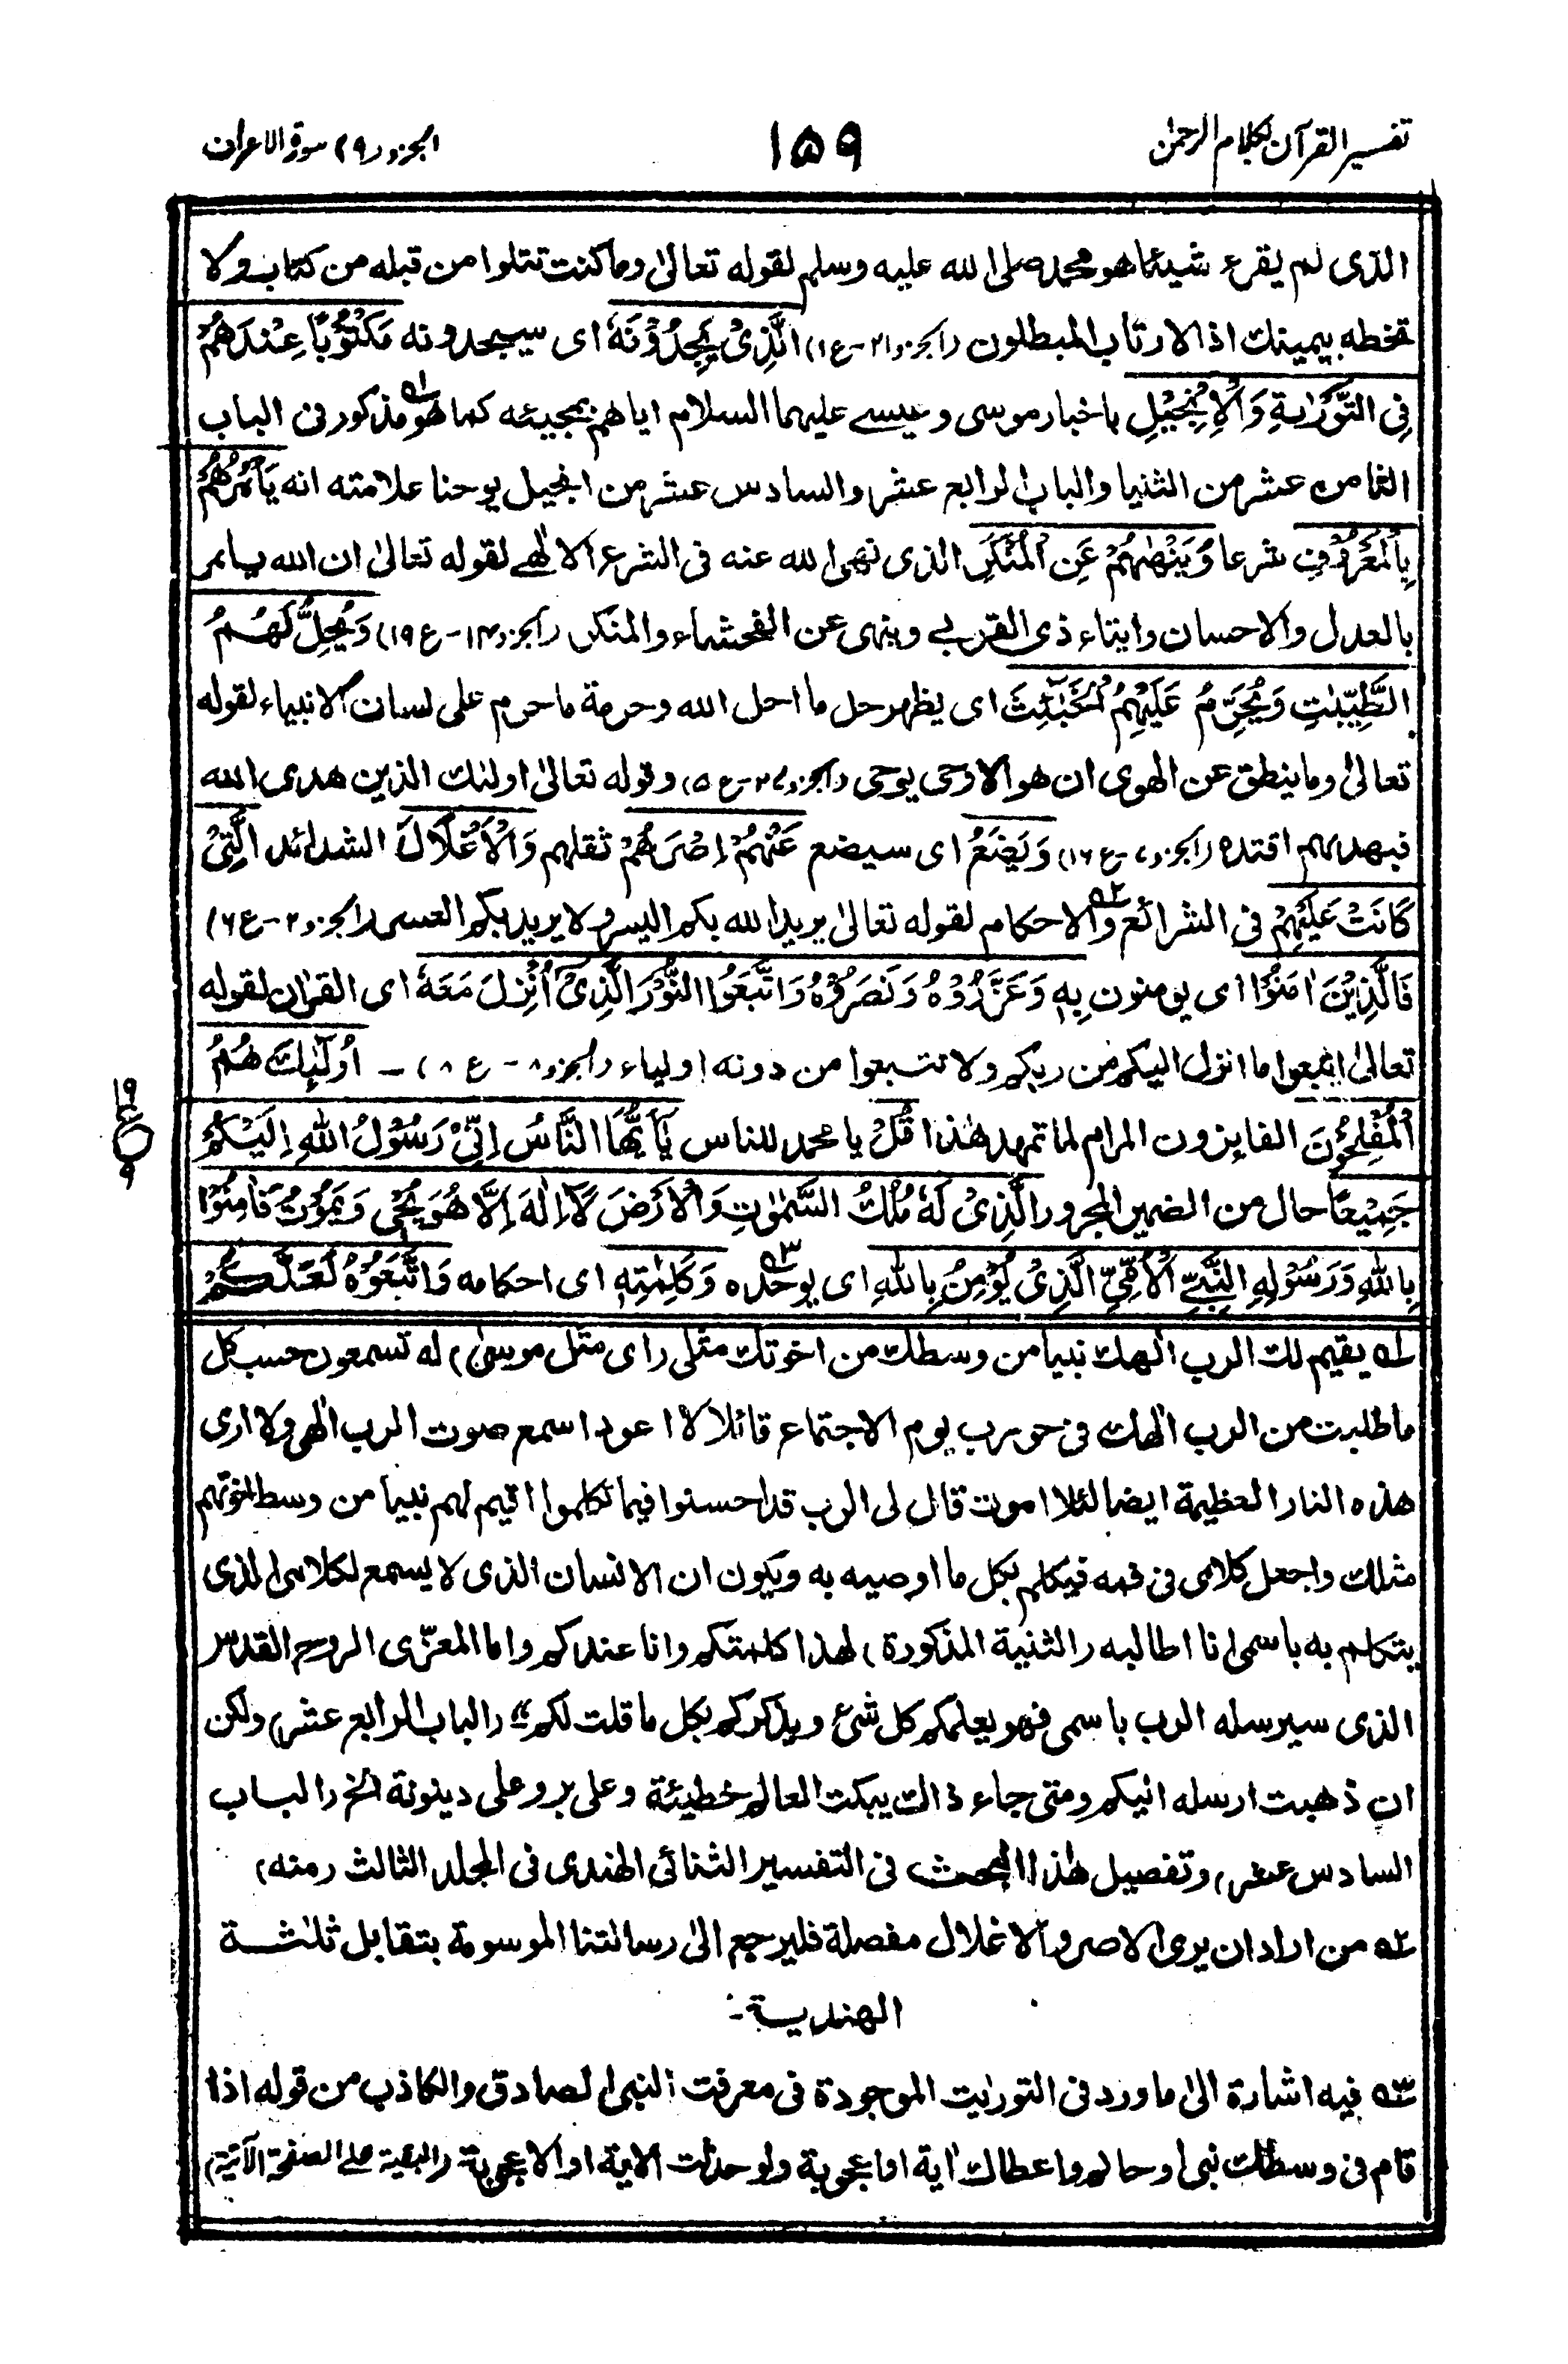 تفسير القرآن بكلام الرحمن ١٥٩ الجزء (٩) سورة الاعراف
الذى لم يقرء شيئا هو محمد صلى الله عليه وسلم لقوله تعالىٰ وما كنت تتلوا من قبله من كتاب ولا
تخطه بيمينك اذا لارتاب المبطلون (الجزء ٢١-ع ١) الَّذِىْ يَجِدُوْنَهٗ اى سيجدونه مَكْتُوْبًا عِنْدَهُمْ
فِى التَّوْرٰىةِ وَالْاِنْجِيْلِ باخبار موسى وعيسے عليهما السلام اياهم بمجيئه كما هو ١؎ مذكور فى الباب
الثامن عشر من الثنيا والباب الرابع عشر والسادس عشر من انجيل يوحنا علامته انه يَأْمُرُهُمْ
بِالْمَعْرُوْفِ شرعا وَيَنْهٰىهُمْ عَنِ الْمُنْكَرِ الذى نهى الله عنه فى الشرع الالٰهے لقوله تعالىٰ ان الله يامر
بالعدل والاحسان وايتاء ذى القربے وينهى عن الفحشاء والمنكر (الجزء ١٤-ع ١٩) وَيُحِلُّ لَهُمُ
الطَّيِّبٰتِ وَيُحَرِّمُ عَلَيْهِمُ الْخَبٰٓئِثَ اى يظهر حل ما احل الله وحرمة ما حرم على لسان الانبياء لقوله
تعالىٰ وما ينطق عن الهوى ان هو الا وحى يوحى (الجزء ٢٧-ع ٥) وقوله تعالىٰ اولئك الذين هدى الله
فبهدىهم اقتده (الجزء ٧-ع ١٦) وَيَضَعُ اى سيضع عَنْهُمْ اِصْرَهُمْ ثقلهم وَالْاَغْلٰلَ الشدائد الَّتِىْ
كَانَتْ عَلَيْهِمْ فى الشرائع ٢؎ والاحكام لقوله تعالىٰ يريد الله بكم اليسر ولا يريد بكم العسر (الجزء ٢-ع ٦)
فَالَّذِيْنَ اٰمَنُوْا اى يومنون بِهٖ وَعَزَّرُوْهُ وَنَصَرُوْهُ وَاتَّبَعُوا النُّوْرَ الَّذِىْٓ اُنْزِلَ مَعَهٗٓ اى القران لقوله
تعالىٰ اتبعوا ما انزل اليكم من ربكم ولا تتبعوا من دونه اولياء (الجزء ٨-ع ٨) - اُولٰٓئِكَ هُمُ
الْمُفْلِحُوْنَ الفايزون المرام لما تمهد هٰذا قُلْ يا محمد للناس يٰٓاَيُّهَا النَّاسُ اِنِّىْ رَسُوْلُ اللهِ اِلَيْكُمْ
ع ٩
جَمِيْعًا حال من الضمير المجرور الَّذِىْ لَهٗ مُلْكُ السَّمٰوٰتِ وَالْاَرْضَ لَآ اِلٰهَ اِلَّا هُوَ يُحْىٖ وَيَمُوْتُ فَاٰمِنُوْا
بِاللهِ وَرَسُوْلِهِ النَّبِىِّ الْاُمِّىِّ الَّذِىْ يُؤْمِنُ بِاللهِ اى يوحده ٣؎ وَكَلِمٰتِهٖ اى احكامه وَاتَّبِعُوْهُ لَعَلَّكُمْ
١؎ يقيم لك الرب الٰهك نبيا من وسطك من اخوتك مثلى (اى مثل موسىٰ) له تسمعون حسب كل
ما طلبت من الرب الٰهك فى حوريب يوم الاجتماع قائلا لا اعود اسمع صوت الرب الٰهى ولا ارى
هذه النار العظيمة ايضا لئلا اموت قال لى الرب قد احسنوا فيما تكلموا اقيم لهم نبيا من وسط اخوتهم
مثلك واجعل كلامى فى فمه فيكلم بكل ما اوصيه به ويكون ان الانسان الذى لا يسمع لكلامى الذى
يتكلم به باسمى انا اطالبه (الثنية المذكورة) لهذا كلمتكم وانا عندكم واما المعزّى الروح القدس
الذى سيرسله الرب باسمى فهو يعلمكم كل شئ ويذكركم بكل ما قلت لكم (الباب الرابع عشر) ولكن
ان ذهبت ارسله اليكم ومتى جاء ذالك يبكت العالم خطيئة وعلى بر وعلى دينونة الخ (الباب
السادس عشر) وتفصيل هٰذا البحث فى التفسير الثنائى الهندى فى المجلد الثالث (منه)
٢؎ من اراد ان يرى الاصر والاغلال مفصلة فليرجع الىٰ رسالتنا الموسومة بتقابل ثلٰثة
الهندية-
٣؎ فيه اشارة الىٰ ما ورد فى التورٰيت الموجودة فى معرفت النبى الصادق والكاذب من قوله اذا
قام فى وسطك نبى او حالم واعطاك اٰية او اعجوبة ولو حدثت الاية او الاعجوبة (البقية على الصفحة الآتية)